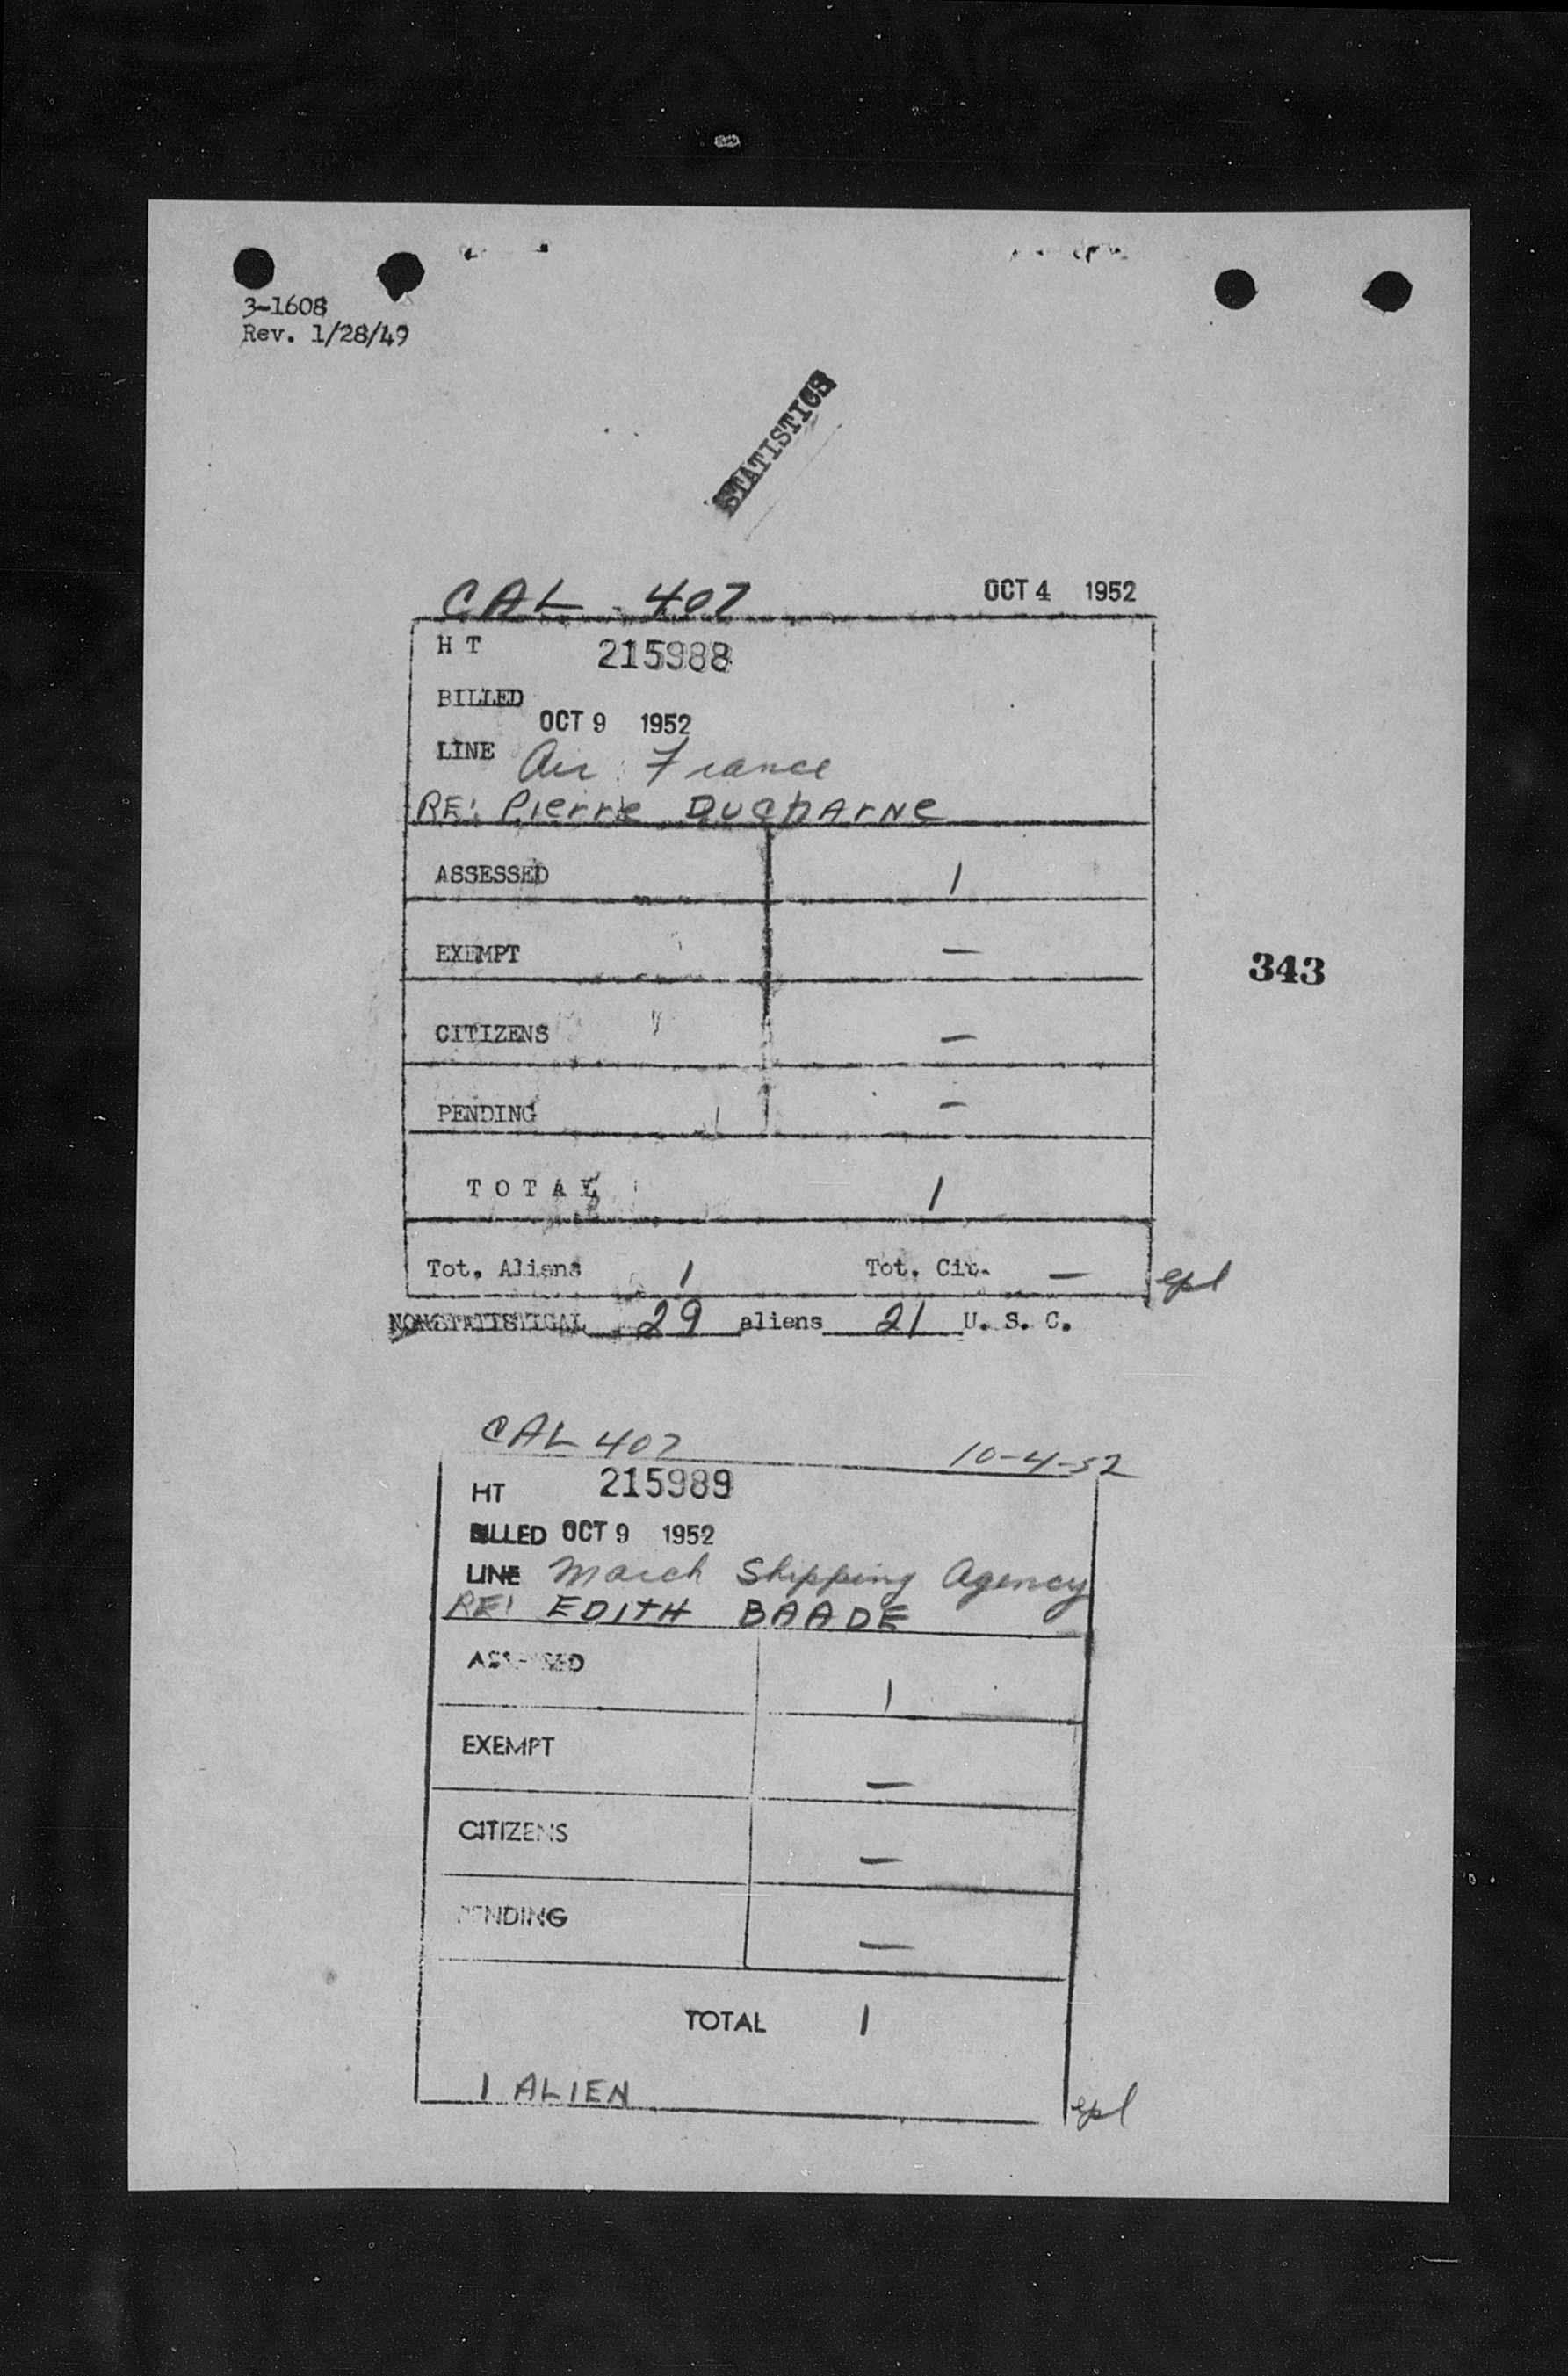 3-1608
Rev. 1/28/49
STATISTICS
CAL 407 OCT 4 1952
H T 215988
BILLED
OCT 9 1952
LINE Air France
RE: Pierre DUCHARNE
ASSESSED 1
EXEMPT —
343
CITIZENS —
PENDING —
T O T A L 1
Tot. Aliens 1 Tot. Cit. —
epl
NONSTATISTICAL 29 aliens 21 U. S. C.
CAL 407 10-4-52
HT 215989
BILLED OCT 9 1952
LINE March Shipping Agency
RE: EDITH BAADE
ASSESSED 1
EXEMPT —
CITIZENS —
PENDING —
TOTAL 1
1 ALIEN
epl